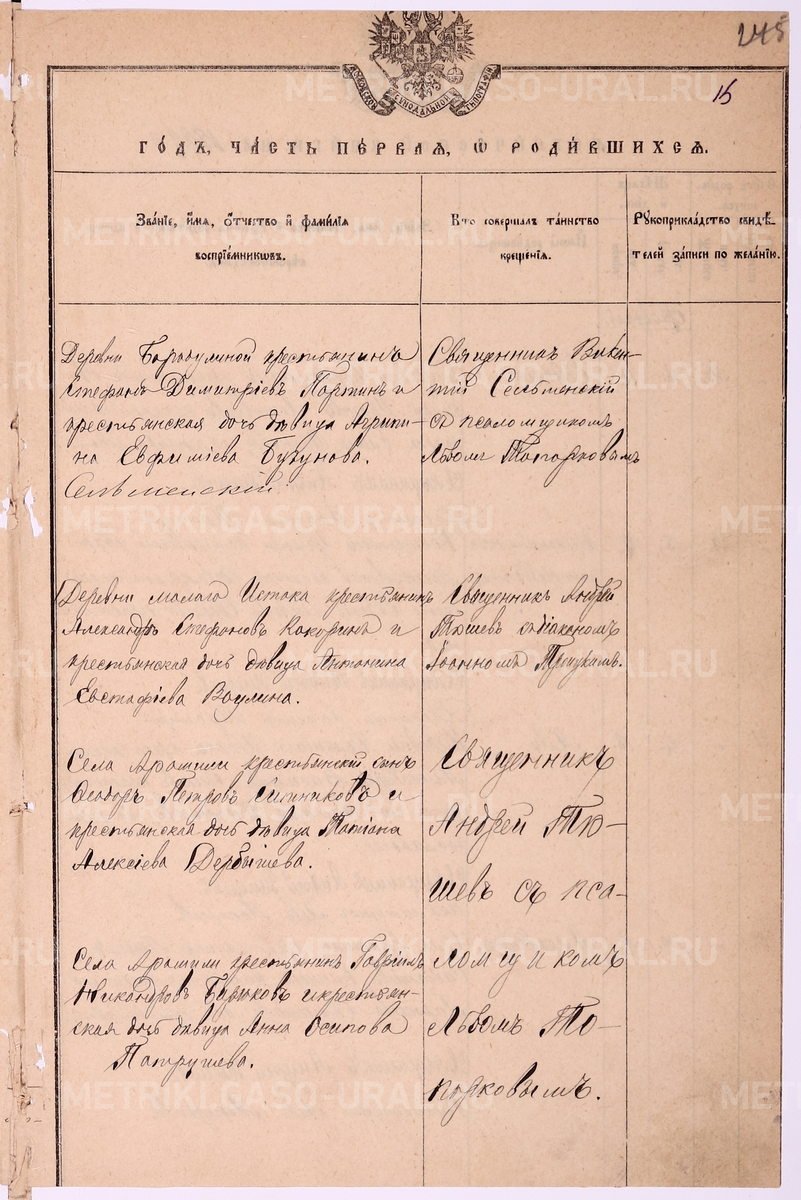 245
МОСКОВСКОЙ СѴНОДАЛЬНОЙ ТѴПОГРАФІИ
15
ГОДЪ, ЧАСТЬ ПЕРВАЯ, Ѡ РОДИВШИХСЯ.
Званіе, имя, отчество и фамилія
воспріемниковъ.
Кто совершалъ таинство
крещенія.
Рукоприкладство свидѣ-
телей записи по желанію.
Деревни крестьянинъ
Стефанъ Димитріевъ Портинъ и
крестьянская дочь дѣвица Агрипи-
на Евфиміева Бузунова.
Сельменскій
Священникъ Викен-
тій Сельменскій
съ псаломщикомъ
Львомъ Топорковымъ
Деревни малаго Истока крестьянинъ
Александръ Стефановъ Кокоринъ и
крестьянская дочь дѣвица Антонина
Евстафіева Ваулина.
Священникъ Андрей
Тюшевъ съ діакономъ
Іоанномъ
Села Арамили крестьянскій сынъ
Ѳеодоръ Петровъ Ситниковъ и
крестьянская дочь дѣвица Татіана
Алексіева Дербышева.
Священникъ
Андрей Тю-
шевъ съ пса-
ломщикомъ
Львомъ То-
порковымъ.
Села Арамили крестьянинъ Гавріилъ
Никандровъ и крестьян-
ская дочь дѣвица Анна Осипова
Патрушева.
METRIKI.GASO-URAL.RU